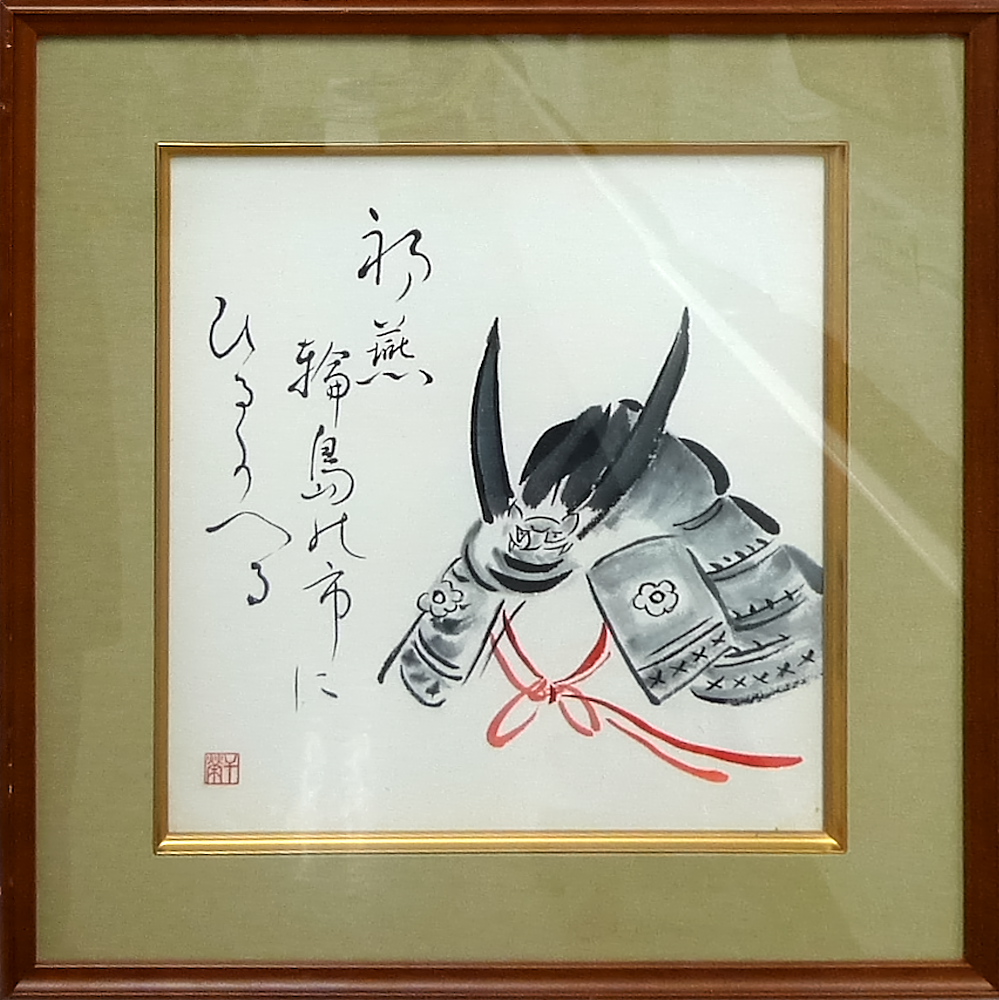 初燕
輪島の市に
ひるかへる
千榮